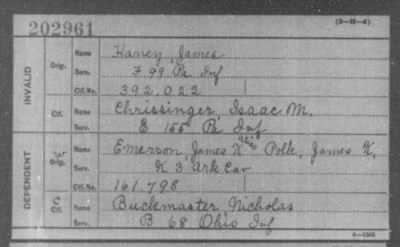 202961
(3-25-4)
INVALID
Orig.
Name Haney, James
Serv. F 99 Pa Inf
Ctf. No. 392.022
Ctf.
Name Chrissinger, Isaac M.
Serv. E 155 Pa Inf
DEPENDENT
W
Orig.
alias
Name Emerson, James K Polk, James K.
Serv. K 3 Ark Cav
Ctf. No. 161.798
C
Ctf.
Name Buckmaster Nicholas
Serv. B 68 Ohio Inf